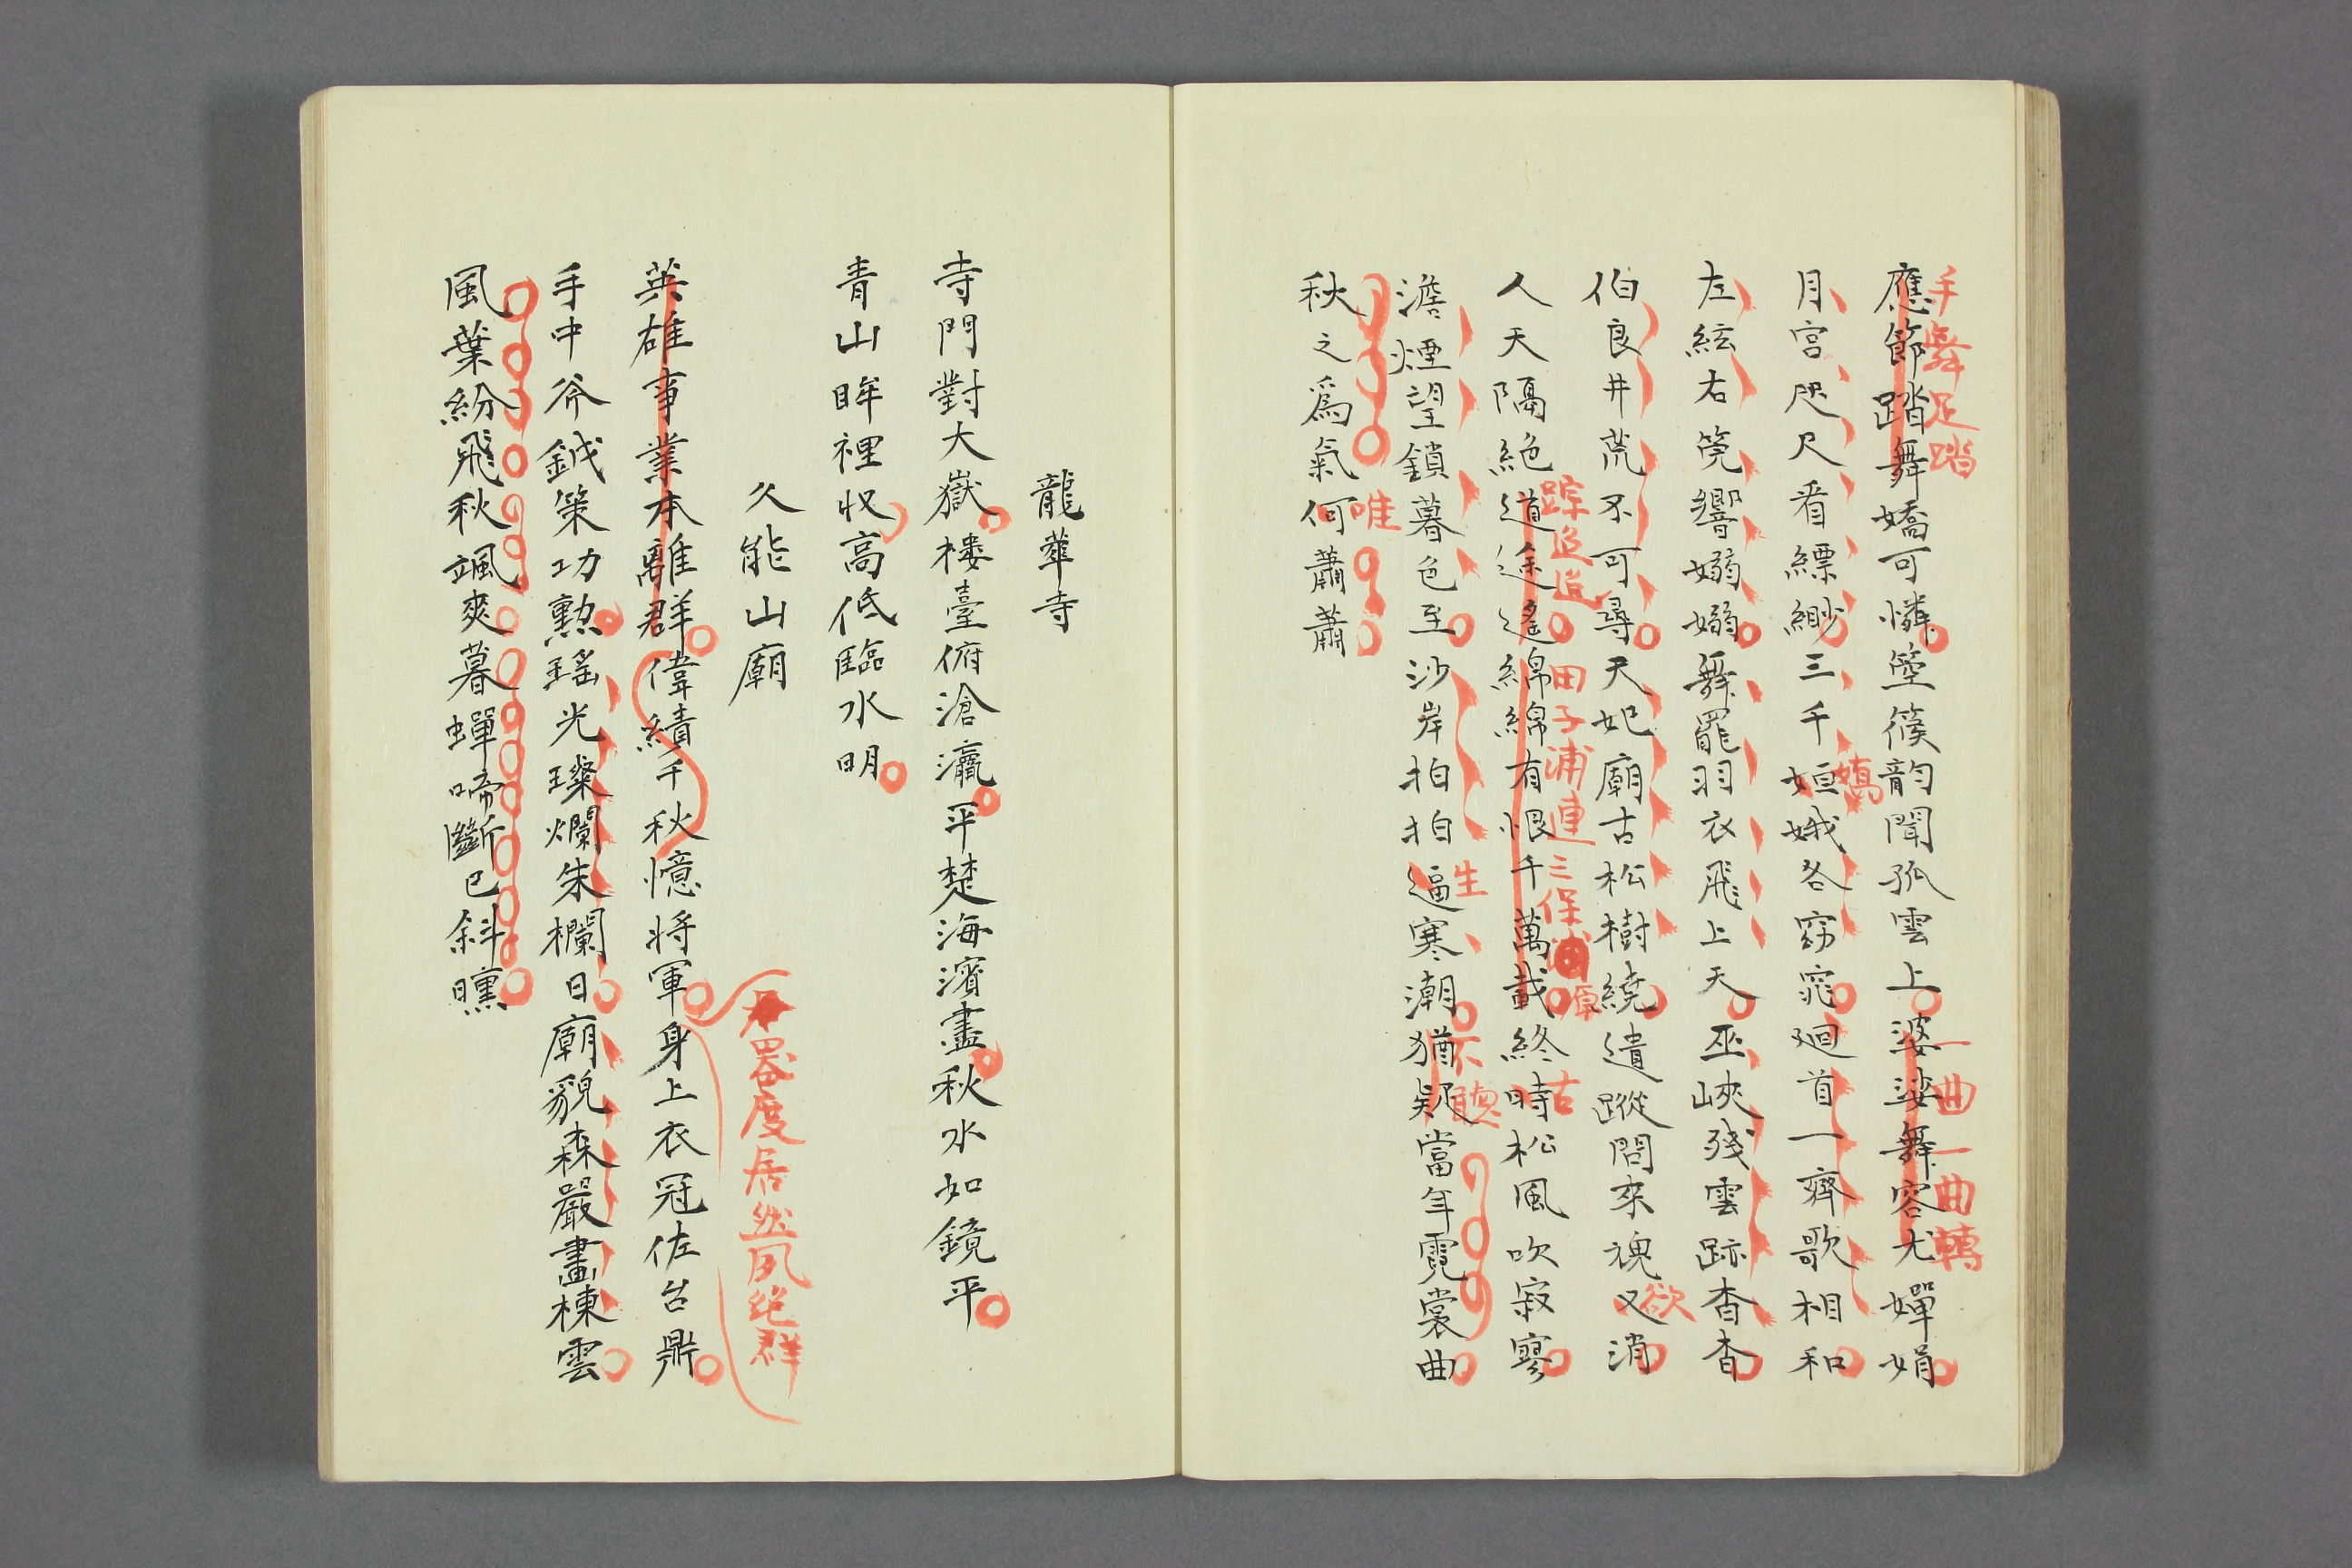 手舞足踏
一曲一曲轉
應節踏舞嬌可憐箜篌韵聞孤雲上婆娑舞容尤嬋娟
月宮咫尺看縹緲三千姮娥各窈窕廻首一齊歌相和
嫣
左絃右筦響嫋嫋舞罷羽衣飛上天巫峽殘雲跡杳杳
伯良井荒不可尋天妃廟古松樹繞遺蹤問來魂又消
欲
踪追追
田子浦連三保
原
古
人天隔絶道途遙綿綿有恨千萬載終時松風吹寂寥
澹煙望鎖暮色至沙岸拍拍逼寒潮猶疑當年霓裳曲
生
不聽
秋之爲氣何蕭蕭
唯
龍華寺
寺門對大嶽樓臺俯滄瀛平楚海濱盡秋水如鏡平
青山眸裡收高低臨水明
久能山廟
器度居然夙絶群
英雄事業本離群偉績千秋憶将軍身上衣冠佐台鼎
手中斧鉞策功勲瑤光璨爛朱欄日廟貌森嚴畫棟雲
風葉紛飛秋颯爽暮蟬啼斷已斜曛